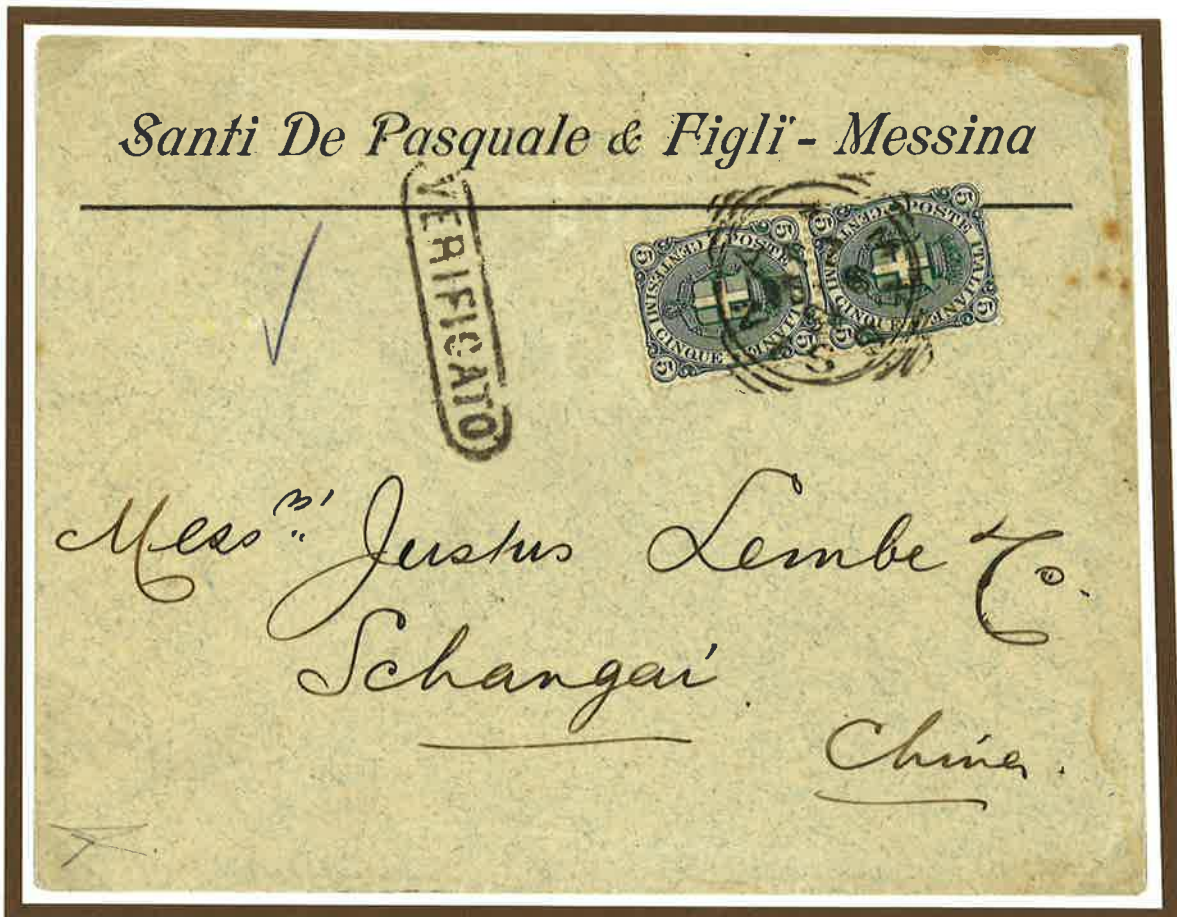 Santi De Pasquale & Figli - Messina
VERIFICATO
POSTE ITALIANE
CENTESIMI CINQUE
5 5 5 5
POSTE ITALIANE
CENTESIMI CINQUE
5 5 5 5
Mess.rs Justus Lembe & Co.
Schangai
China.